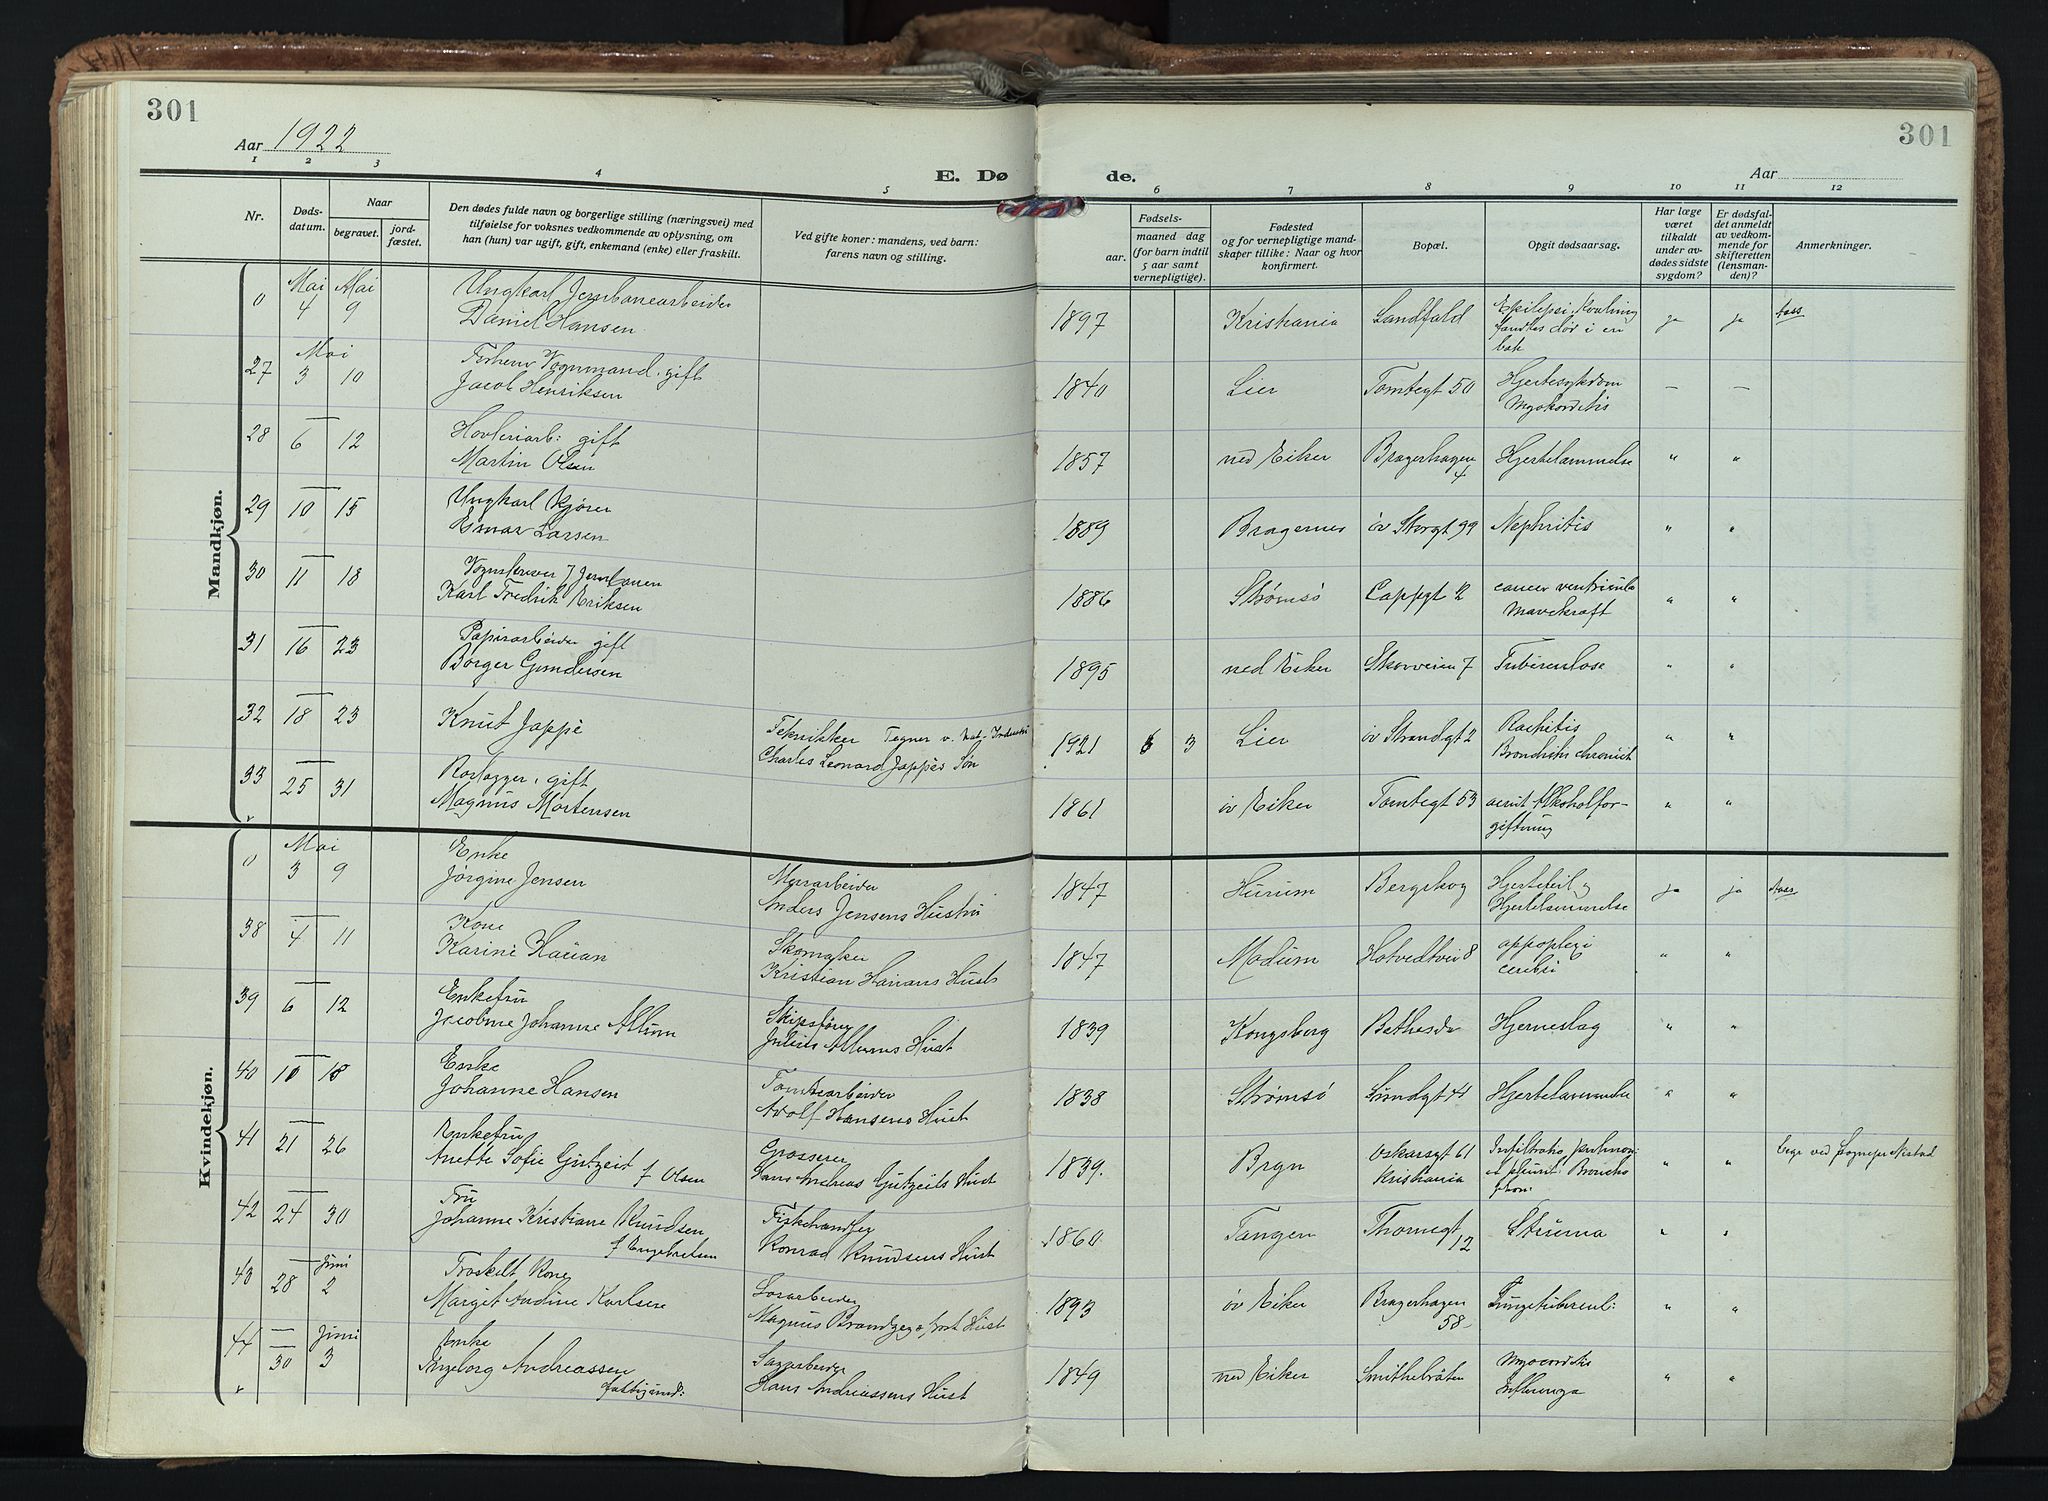 301
301
Aar 1922
E. Dø
de.
Aar
1 2 3 4 5 6 7 8 9 10 11 12
Nr.
Døds-
datum.
Naar
begravet.
jord-
fæstet.
Den dødes fulde navn og borgerlige stilling (næringsvei) med
tilføielse for voksnes vedkommende av oplysning, om
han (hun) var ugift, gift, enkemand (enke) eller fraskilt.
Ved gifte koner: mandens, ved barn:
farens navn og stilling.
Fødsels-
aar.
maaned dag
(for barn indtil
5 aar samt
vernepligtige).
Fødested
og for vernepligtige mand-
skaper tillike: Naar og hvor
konfirmert.
Bopæl.
Opgit dødsaarsag.
Har læge
været
tilkaldt
under av-
dødes sidste
sygdom?
Er dødsfal-
det anmeldt
av vedkom-
mende for
skifteretten
(lensman-
den)?
Anmerkninger.
Mandkjøn.
0 Mai 4 Mai 9 Ungkarl Jernbanearbeider
Daniel Hansen 1897 Kristiania Landfald Epilepsi. Kvælning
fandtes død i en
bæk ja ja Aass
27 Mai 3 10 Forhenv Vognmand. gift
Jacob Henriksen 1840 Lier Tomtegt 50 Hjertesykdom
Myokarditis — —
28 — 6 12 Høvleriarb: gift
Martin Olsen 1857 ned Eiker Bragerhagen
4 Hjertelammelse " "
29 — 10 15 Ungkarl Kjører
Einar Larsen 1889 Bragernes øv Storgt 99 Nephritis " "
30 — 11 18 Vognskriver v Jernbanen
Karl Fredrik Eriksen 1886 Strømsø Cappgt 2 cancer ventriculi
Mavekræft " "
31 — 16 23 Papirarbeider gift
Borger Gundersen 1895 ned Eiker Skovveien 7 Tuberculose " "
32 — 18 23 Knut Jappe Teknikker Tegner v.
Charles Leonard Jappes Søn 1921 6 3 Lier øv Strandgt 2 Rachitis
Bronchitis chronict " "
33 — 25 31 Rorlægger, gift
Magnus Mortensen 1861 øv Eiker Tomtegt 53 acut Alkoholfor-
giftning " "
Kvindekjøn.
0 Mai 3 9 Enke
Jørgine Jensen Murarbeider
Anders Jensens Hustru 1847 Hurum Bergskog Hjertefeil
Hjertelammelse ja ja Aass
38 — 4 11 Kone
Karine Hauan Skomaker
Kristian Hauans Hust 1847 Modum Hotvedtvei 8 appoplexi
cerebri " "
39 — 6 12 Enkefru
Jacobine Johanne Allum Skipsfører
Julius Allums Hust 1839 Kongsberg Bethesda Hjerneslag " "
40 — 10 18 Enke
Johanne Hansen Tomtearbeider
Adolf Hansens Hust 1838 Strømsø Sundgt 41 Hjertelammelse " "
41 — 21 26 Enkefru
Anette Sofie Gutzeit f Olsen Grosserer
Hans Andreas Gutzeits Hust 1839. Brgn Oskarsgt 61
Kristiania Infiltratio pulmon:
et pleurit: Broncho
pneu: " " bege ved sognepr
42 — 24 30 Fru
Johanne Kristiane Knudsen
f Engebretsen Fiskehandler
Konrad Knudsens Hust 1860 Tangen Thornegt
12 Struma " "
43 — 28 Juni 2 Fraskilt Kone
Margit Andine Karlsen
Magnus Hust 1893 øv Eiker Bragerhagen
58 Lungetubercul: " "
44 — 30 Juni 3 Enke
Ingeborg Andreassen
fattigund: Sagarbeider
Hans Andreassens Hust 1849 ned Eiker Smithebråten Myocarditis
Influenza " "